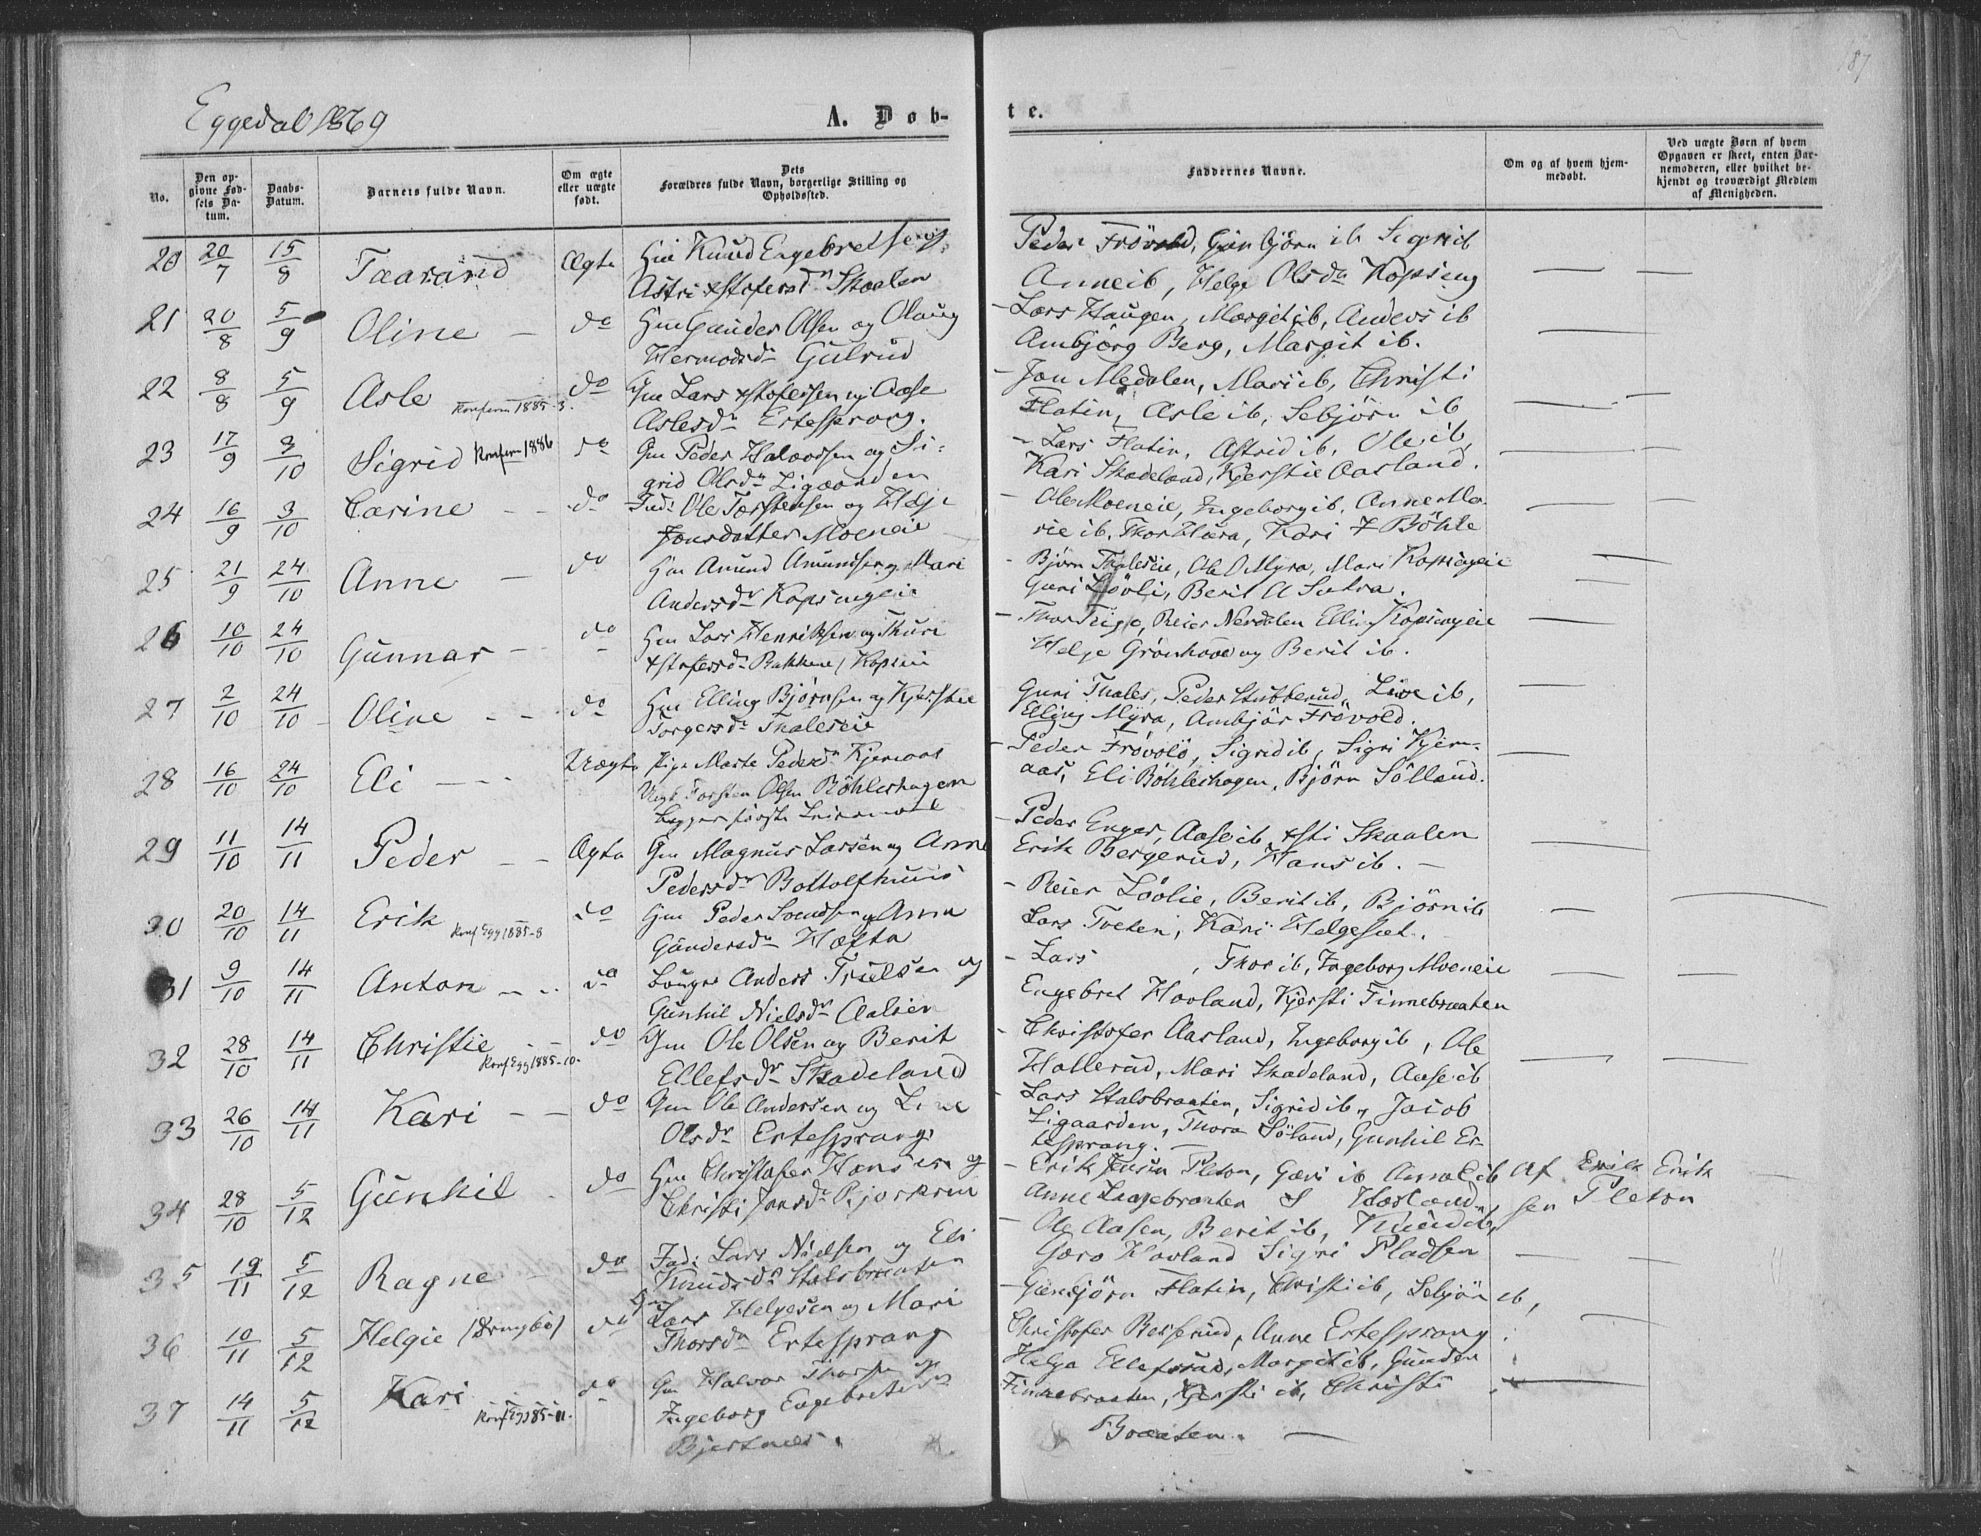 187
Eggedal 1869
A. Døb-
te.
No.
Den op-
givne Fød-
sels Da-
tum.
Daabs-
Datum.
Barnets fulde Navn.
Om ægte
eller uægte
født.
Dets
Forældres fulde Navn, borgerlige Stilling og
Opholdssted.
Faddernes Navne.
Om og af hvem hjem-
medøbt.
Ved uægte Børn af hvem
Opgaven er skeet, enten Bar-
nemoderen, eller hvilket be-
kjendt og troværdigt Medlem
af Menigheden.
20 20/7 15/8 Taarand Ægte Knud Engebretsen
Astri xstofersdr Skaalen
Peder Frövold, Gunbjörn ib Sigrid
Anne ib, Helge Olsdr Kopseng
21 20/8 5/9 Oline do Gm Gunder Olsen og Olaug
Hermodsdr Gulrud
Lars Haugen, Margit ib, Anders ib
Ambjörg Berg, Margit ib.
22 8/8 5/9 Asle Konferm 1885-3. do Gm Lars xstofersen og Aase
Aslesdr Ertesprang.
Jon Medalen, Mari ib, Christi
Flatin, Asle ib, Sebjörn ib
23 17/9 3/10 Sigrid Konferm 1886 do Gm Peder Halvorsen og Si-
grid Olsdr Ligaarden
Lars Flatin, Astrid ib, Ole ib,
Kari Skadeland, Kjerstie Aasland.
24 16/9 3/10 Carine do Ind: Ole Torstensen og Helge
Jonsdatter Moeneie
Ole Moeneie, Ingeborg ib, Anne Ma-
rie ib, Thor Hæra, Kari Böhle
25 21/9 24/10 Anne do Hm Amund Amundsen og Mari
Andersdr Kopsengeie
Björn Thaleseie, Ole O Myra, Mari Kopsengeie
Guri Lövli, Berit A Sætra.
26 10/10 24/10 Gunnar do Hm Lars Henriksen og Thuri
xstofersdr Bakken / Kopsen
Thor Teige, Reier Nerdalen Elling Kopsengeie
Helge Grönhovd og Berit ib.
27 2/10 24/10 Oline do Hm Elling Björnsen og Kjerstie
Torgersdr Thaleseie
Guri Thales, Peder Stubberud, Live ib,
Elling Myra, Ambjör Frövold.
28 16/10 24/10 Eli Uægte Pige Marte Pedersdr Kjemaas
Ungk Torsten Olsen Böhleshagen
begges første Leiermaal
Peder Frövold, Sigrid ib, Sigri Kjem-
aas, Eli Böhleshagen, Björn Sölland.
29 11/10 14/11 Peder Ægte Gm Magnus Larsen og Anne
Pedersdr Bottolfhuus
Peder Enger, Aase ib xsti Skaalen
Erik Bergerud, Hans ib.
30 20/10 14/11 Erik Konf Egg 1885-8 do Gm Peder Svendsen og Anne
Gundersdr Hæfta
Reier Lövlie, Berit ib, Björn ib
Lars Tveten, Kari Helgeset.
31 9/10 14/11 Anton do Anders Truelsen og
Gunhil Nielsdr Aalien
Lars , Thor ib, Ingeborg Moeneie
Engebret Hovland, Kjersti Finnebraaten
32 28/10 14/11 Christie Konf Egg 1885-10. do Gm Ole Olsen og Berit
Ellefsdr Skadeland
Christofer Aasland, Ingeborg ib, Ole
Hallerud, Mari Skadeland, Aase ib
33 26/10 14/11 Kari do Gm Ole Andersen og Line
Olsdr Ertesprang.
Lars Stalsbraaten, Sigrid ib, Jacob
Ligaarden, Thora Söland, Gunhil Er-
tesprang.
34 28/10 5/12 Gunhil do Hm Christofer Hansen og
Christi Jonsdr
Erik Jensen Pleton, Guri ib Anne E ib
Anne Hovland
Af Erik Erik
sen Pleton
35 19/11 5/12 Ragne do Ind: Lars Nielsen og Eli
Knudsdr Stalsbraaten
Ole Aasen, Berit ib, Knud ib,
Guro Hovland Sigri Pladsen
36 10/11 5/12 Helgie do Gm Lars Helgesen og Mari
Thorsdr Ertesprang
Gunbjörn Flatin, Christi ib, Sebjörn ib,
Christofer Besserud, Anne Ertesprang.
37 14/11 5/12 Kari Konf Egg 85-11. do Gm Halvor Thorsen og
Ingeborg Engebretsdr
Bjertnæs.
Helge Ellefsrud, Margit ib, Gunder
Finnebraaten, Kjersti ib, Christi
Braaten.